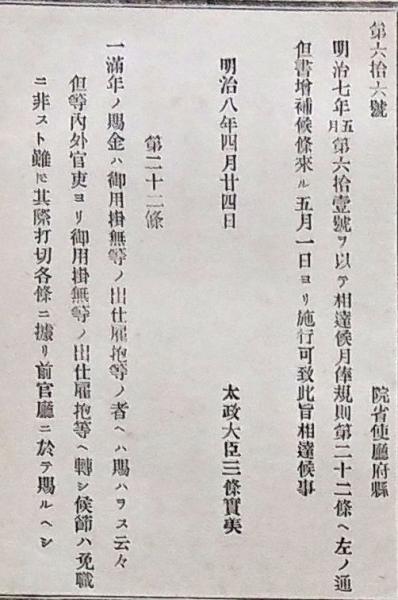 第六拾六號
院省使廳府縣
明治七年五月第六拾壹號ヲ以テ相達候月俸規則第二十二條ヘ左ノ通
但書增補候條來ル五月一日ヨリ施行可致此旨相達候事
明治八年四月廿四日
太政大臣三條實美
第二十二條
一滿年ノ賜金ハ御用掛無等ノ出仕雇抱等ノ者ヘハ賜ハラス云々
但等內外官吏ヨリ御用掛無等ノ出仕雇抱等ヘ轉シ候節ハ免職
ニ非スト雖𪜈其際打切各條ニ據リ前官廳ニ於テ賜ルヘシ